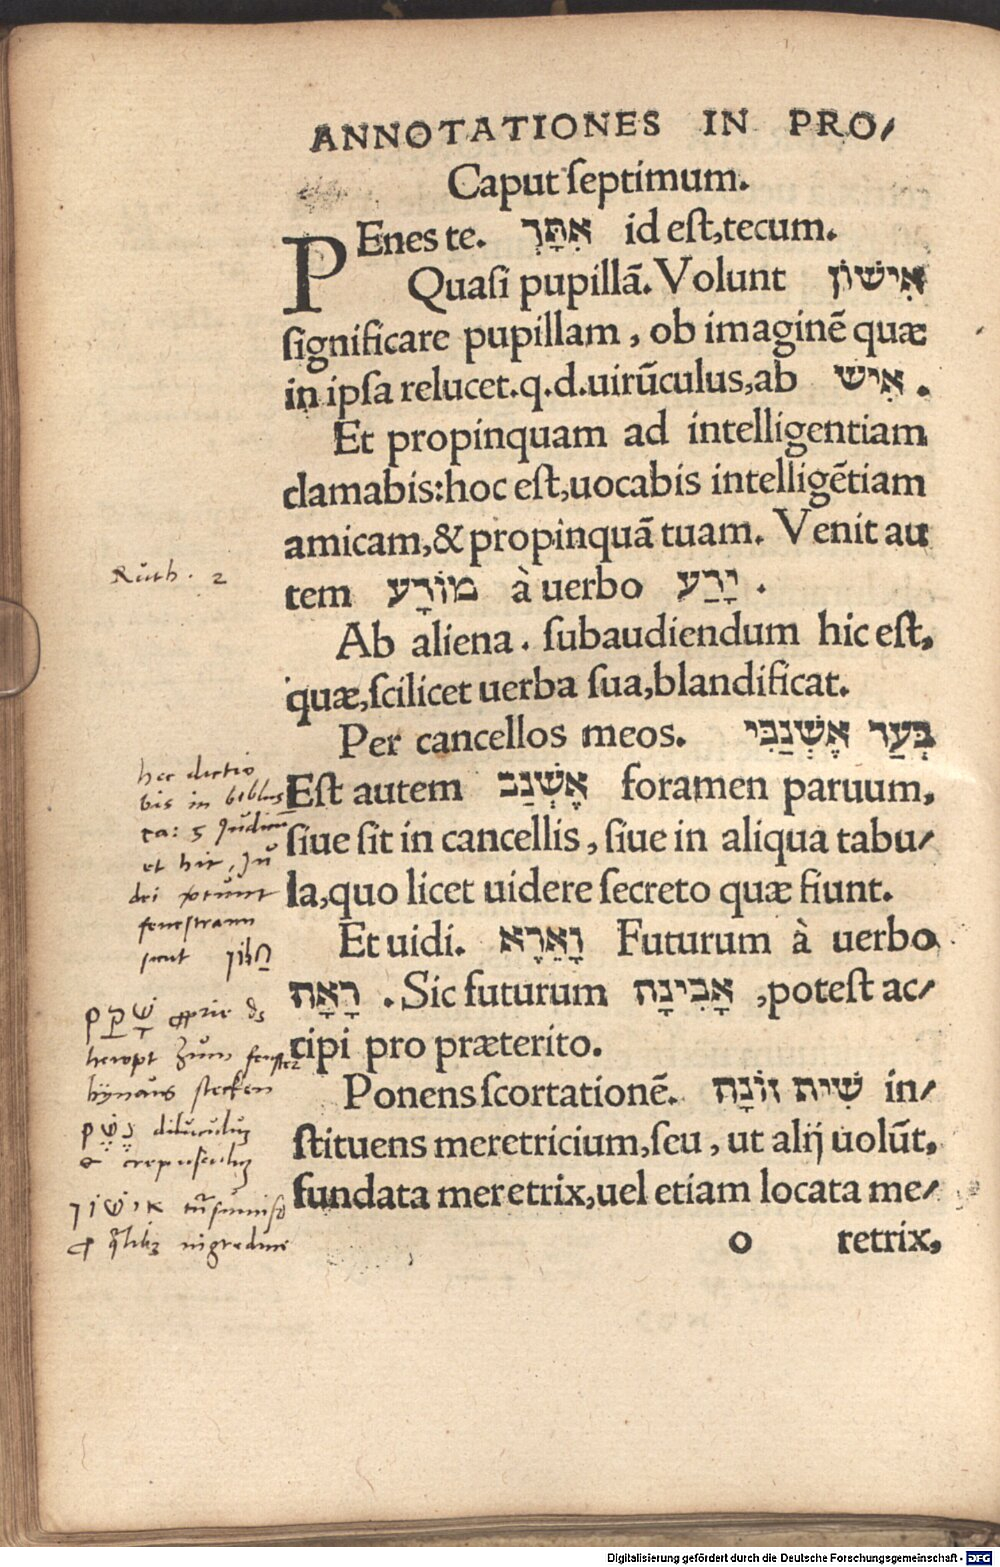 ANNOTATIONES IN PRO/
Caput ſeptimum.
PEnes te. אִתָּךְ id eſt,tecum.
Quaſi pupillã. Volunt אִישׁוֹן
ſignificare pupillam , ob imaginẽ quæ
in ipſa relucet.q.d.uirũculus,ab אִישׁ .
Et propinquam ad intelligentiam
clamabis:hoc eſt,uocabis intelligẽtiam
amicam,& propinquã tuam. Venit au
Ruth. 2
tem מוֹדָע à uerbo יָדַע .
Ab aliena . ſubaudiendum hic eſt,
quæ,ſcilicet uerba ſua,blandificat.
Per cancellos meos. בְּעַד אֶשְׁנַבִּי
Eſt autem אֶשְׁנַב foramen paruum,
ſiue ſit in cancellis , ſiue in aliqua tabu/
la,quo licet uidere ſecreto quæ fiunt.
hec dictio
bis in biblijs
ca: 5 Judicũ
et hic, Ju
fenestram
חלון
Et uidi. וָאֵרֶא Futurum à uerbo
רָאָה . Sic futurum אָבִינָה ,potest ac/
cipi pro præterito.
Ponens ſcortationẽ. שִׁית זוֹנָה in/
ſtituens meretricium,ſeu , ut alij uolũt,
fundata meretrix,uel etiam locata me/
zum fenster
stecken
נשף diluculum
crepusculum
אישון
nigredine
o retrix,
Digitalisierung gefördert durch die Deutsche Forschungsgemeinschaft - DFG